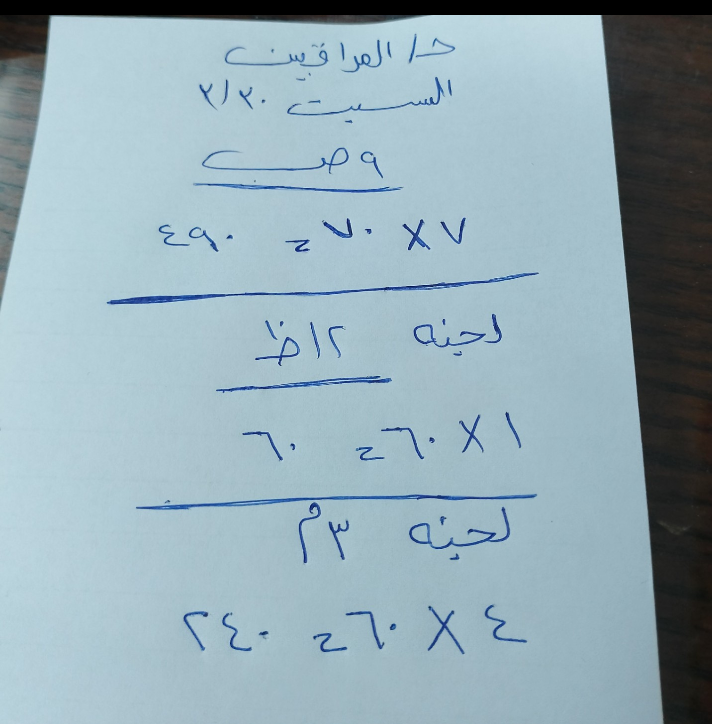 ح/ المراقبين
السبت ٣٠/٣
٩ ص
٧ × ٧٠ = ٤٩٠
لجنه ١٢ظ
١ × ٦٠ = ٦٠
لجنه ٣م
٤ × ٦٠ = ٢٤٠